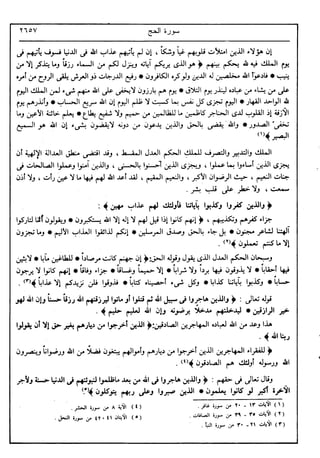 سورة الحج
٢٦٥٧
إن هؤلاء الذين امتلأت قلوبهم غياً وشكاً ، إن لم يأتيهم عذاب الله فى الدنيا فسوف يأتيهم فى
يوم الملك فيه لله يحكم بينهم ﴿ هو الذى يريكم آياته وينزل لكم من السماء رزقاً وما يتذكر إلا من
ينيب * فادعوا الله مخلصين له الدين ولو كره الكافرون * رفيع الدرجات ذو العرش يلقى الروح من أمره
على من يشاء من عباده لينذر يوم التلاق * يوم هم بارزون لا يخفى على الله منهم شىء لمن الملك اليوم
لله الواحد القهار * اليوم تجزى كل نفس بما كسبت لا ظلم اليوم إن الله سريع الحساب * وأنذرهم يوم
الآزفة إذ القلوب لدى الحناجر كاظمين ما للظالمين من حميم ولا شفيع يطاع * يعلم خائنة الأعين وما
تخفى الصدور * والله يقضى بالحق والذين يدعون من دونه لا يقضون بشىء إن الله هو السميع
البصير ﴾(١)
الملك والتدبير والتصرف للملك الحكم العدل المقسط ، وقد اقتضى منطق العدالة الإلهية أن
يجزى الذين أساءوا بما عملوا ، ويجزى الذين أحسنوا بالحسنى ، والذين آمنوا وعملوا الصالحات فى
جنات النعيم ، حيث الرضوان الأكبر ، والنعيم المقيم ، لقد أعد الله لهم فيها ما لا عين رأت ، ولا أذن
سمعت ، ولا خطر على قلب بشر .
﴿ والذين كفروا وكذبوا بآياتنا فأولئك لهم عذاب مهين ﴾ :
جزاء كفرهم وتكذيبهم ، ﴿ إنهم كانوا إذا قيل لهم لا إله إلا الله يستكبرون * ويقولون أئنا لتاركوا
آلهتنا لشاعر مجنون * بل جاء بالحق وصدق المرسلين * إنكم لذائقوا العذاب الأليم * وما تجزون
إلا ما كنتم تعملون ﴾(٢) .
وسبحان الحكم العدل الذى يقول وقوله الحق : ﴿ إن جهنم كانت مرصاداً * للطاغين مآبا * لابثين
فيها أحقاباً * لا يذوقون فيها برداً ولا شراباً * إلا حميماً وغساقاً * جزاء وفاقاً * إنهم كانوا لا يرجون
حساباً * وكذبوا بآياتنا كذابا * وكل شىء أحصيناه كتاباً * فذوقوا فلن نزيدكم إلا عذاباً ﴾(٣) .
قوله تعالى : ﴿ والذين هاجروا فى سبيل الله ثم قتلوا أو ماتوا ليرزقنهم الله رزقاً حسناً وإن الله لهو
خير الرازقين * ليدخلنهم مدخلا يرضونه وإن الله لعليم حليم ﴾ .
هذا وعد من الله لعباده المهاجرين الصادقين : ﴿ الذين أخرجوا من ديارهم بغير حق إلا أن يقولوا
ربنا الله ﴾ .
﴿ للفقراء المهاجرين الذين أخرجوا من ديارهم وأموالهم يبتغون فضلاً من الله ورضواناً وينصرون
الله ورسوله أولئك هم الصادقون ﴾(٤) .
وقال تعالى فى حقهم : ﴿ والذين هاجروا فى الله من بعد ما ظلموا لنبوئنهم فى الدنيا حسنة ولأجر
الآخرة أكبر لو كانوا يعلمون * الذين صبروا وعلى ربهم يتوكلون ﴾(٥)
(١) الآيات ١٣ - ٢٠ من سورة غافر .
(٢) الآيات ٣٥ - ٣٩ من سورة الصافات .
(٣) الآيات ٢١ - ٣٠ من سورة النبأ .
(٤) الآية ٨ من سورة الحشر .
(٥) الآيتان ٤١ ، ٤٢ من سورة النحل .